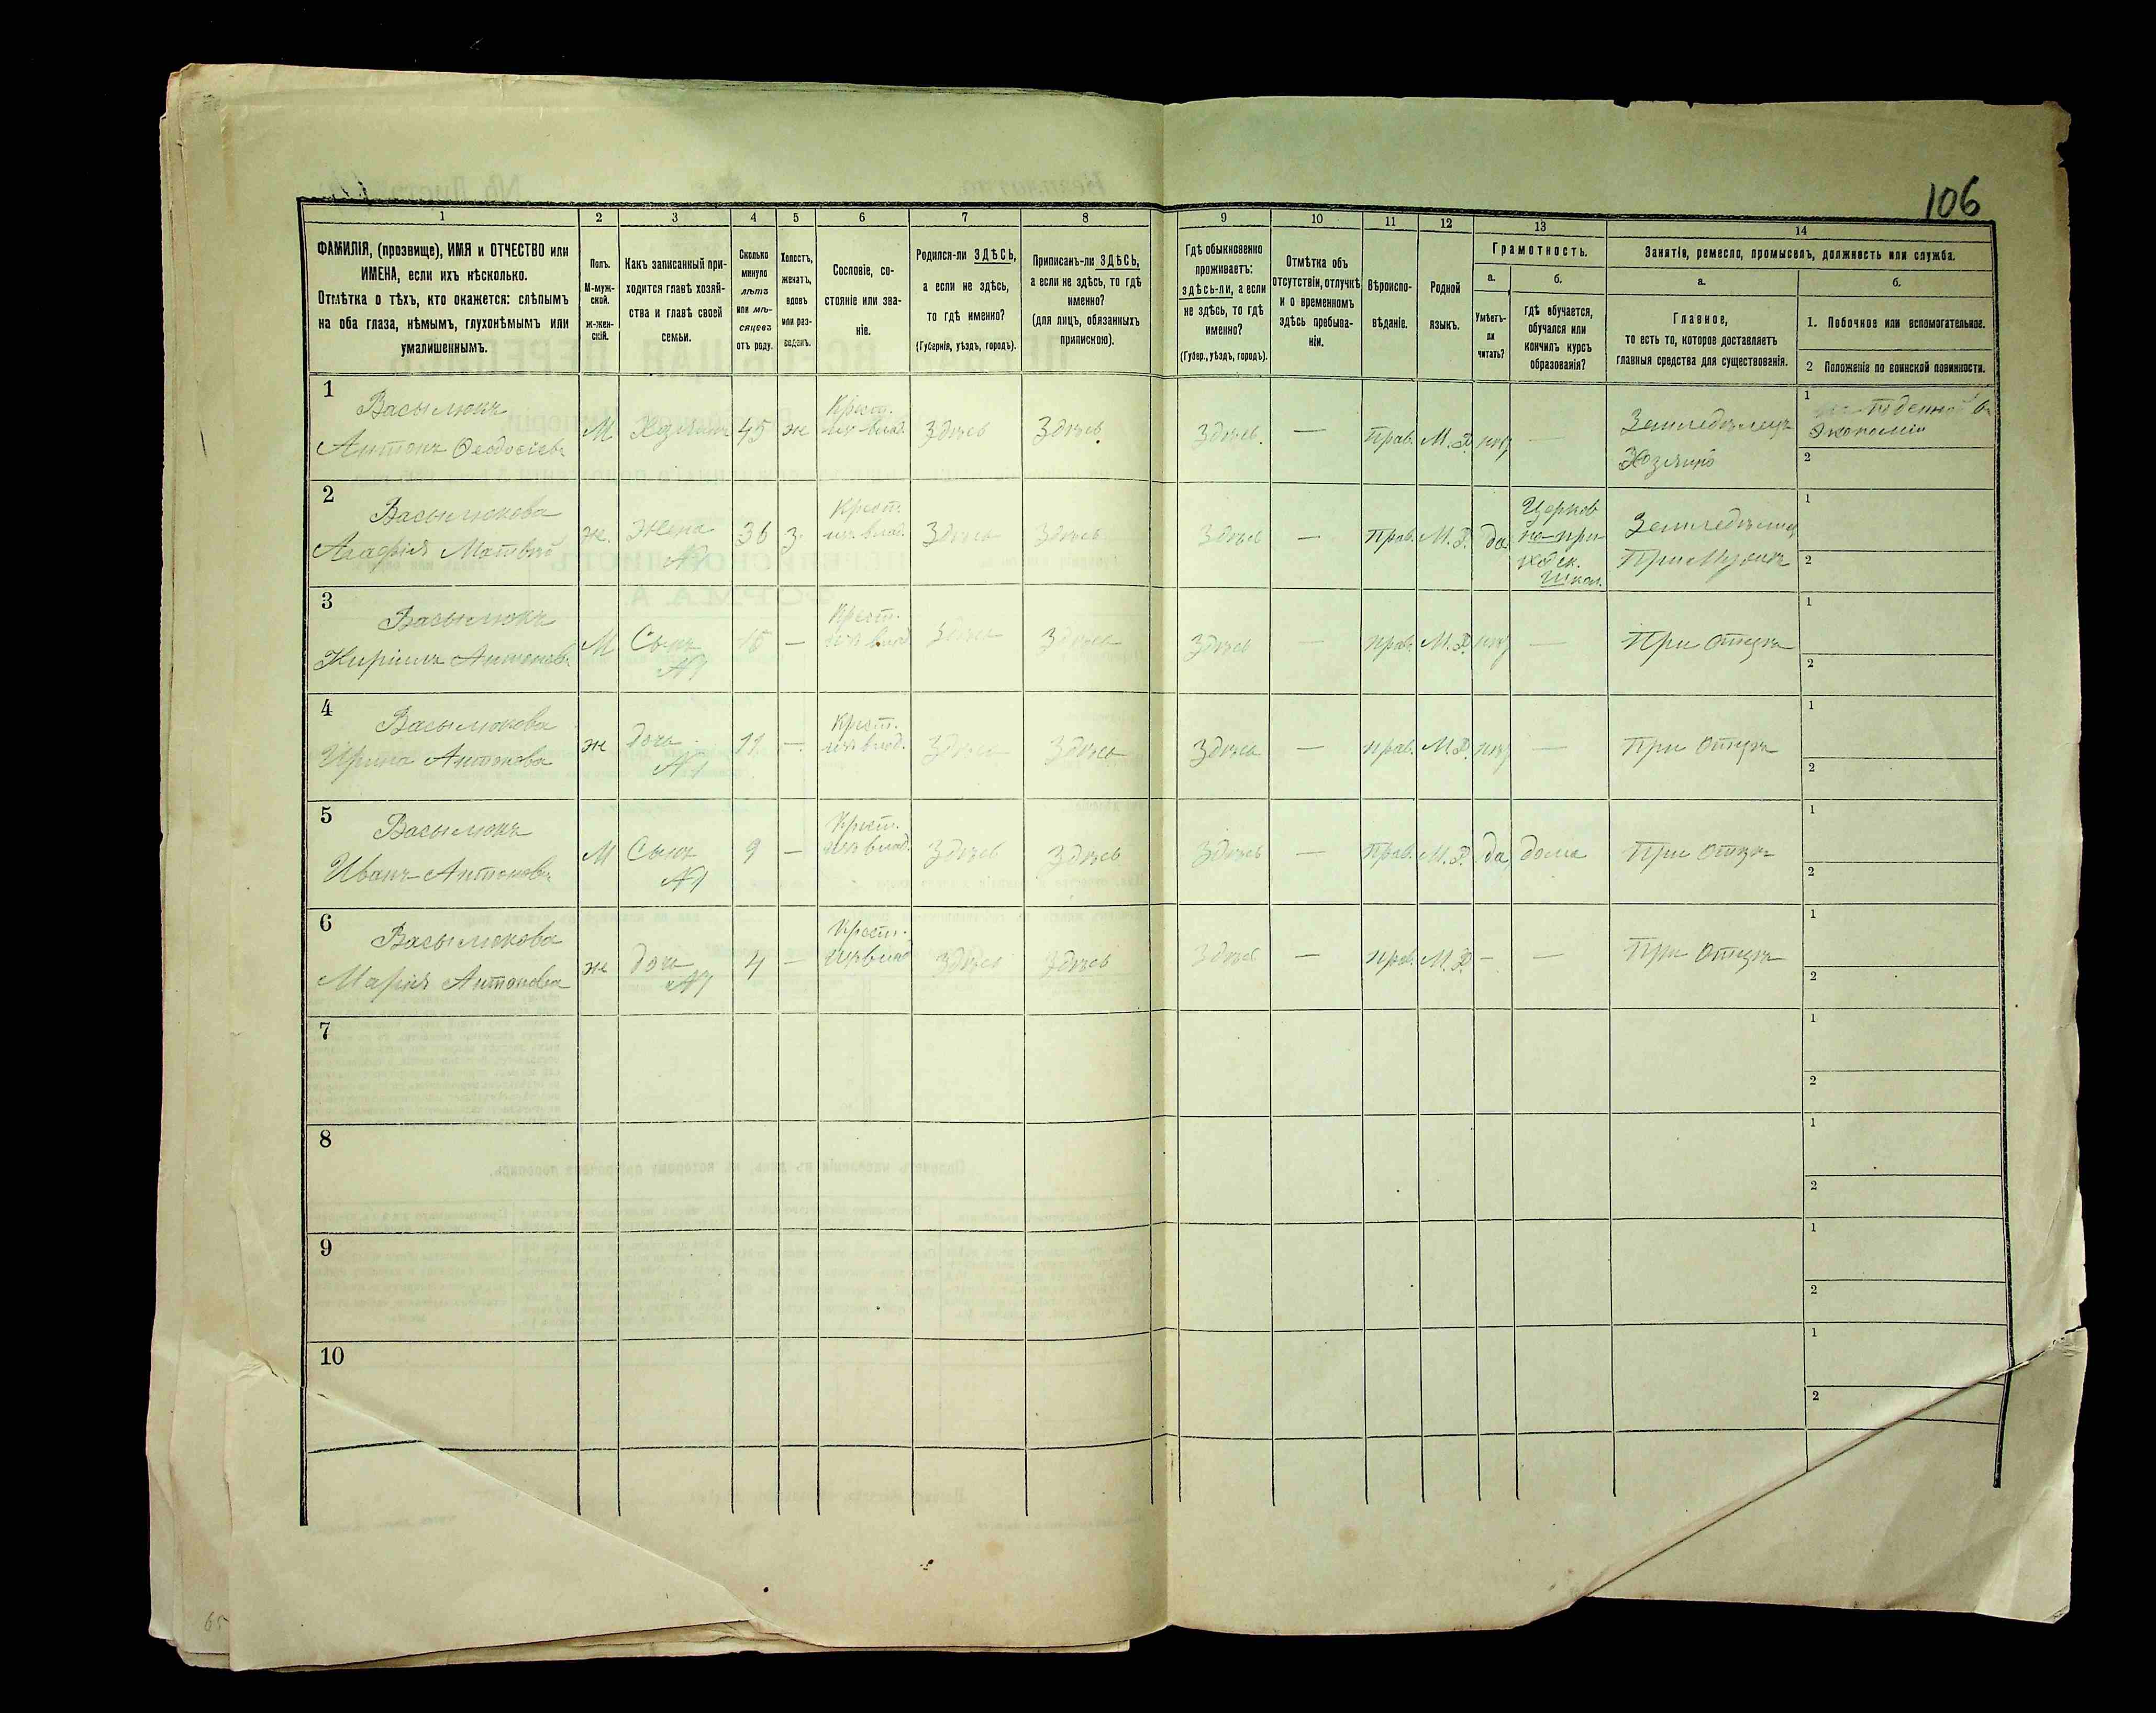 106
1 2 3 4 5 6 7 8 9 10 11 12 13 14
ФАМИЛІЯ, (прозвище), ИМЯ и ОТЧЕСТВО или
ИМЕНА, если ихъ нѣсколько.
Отмѣтка о тѣхъ, кто окажется: слѣпымъ
на оба глаза, нѣмымъ, глухонѣмымъ или
умалишеннымъ.
Полъ.
М-муж-
ской.
ж-жен-
скій.
Какъ записанный при-
ходится главѣ хозяй-
ства и главѣ своей
семьи.
Сколько
минуло
лѣтъ
или мѣ-
сяцевъ
отъ роду.
Холостъ,
женатъ,
вдовъ
или раз-
веденъ.
Сословіе, со-
стояніе или зва-
ніе.
Родился-ли ЗДѢСЬ,
а если не здѣсь,
то гдѣ именно?
(Губернія, уѣздъ, городъ).
Приписанъ-ли ЗДѢСЬ,
а если не здѣсь, то гдѣ
именно?
(для лицъ, обязанныхъ
припискою).
Гдѣ обыкновенно
проживаетъ:
здѣсь-ли, а если
не здѣсь, то гдѣ
именно?
(Губер., уѣздъ, городъ).
Отмѣтка объ
отсутствіи, отлучкѣ
и о временномъ
здѣсь пребыва-
ніи.
Вѣроиспо-
вѣданіе.
Родной
языкъ.
Грамотность.
а.
Умѣетъ-
ли
читать?
б.
гдѣ обучается,
обучался или
кончилъ курсъ
образованія?
Занятіе, ремесло, промыселъ, должность или служба.
а.
Главное,
то есть то, которое доставляетъ
главныя средства для существованія.
б.
1. Побочное или вспомогательное.
2 Положеніе по воинской повинности.
1
Васылюкъ
Антонъ Ѳеодосіевъ
М
Хозяинъ
45
ж
Крест.
изъ влад.
Здѣсь
Здѣсь
Здѣсь.
—
Прав.
М. Р.
нѣт
—
Земледѣлецъ
Хозяинъ
1
Экономіи
2
2
Васылюкова
Агафія Матвѣй
ж.
Жена
№1
36
З.
Крест.
изъ влад.
Здѣсь
Здѣсь
Здѣсь
—
Прав.
М. Р.
да
Церков
но-при-
ходск.
Школ.
Земледѣлецъ
При Мужѣ
1
2
3
Васылюкъ
Кирилъ Антоновъ
М
Сынъ
№1
—
Крест.
изъ влад.
Здѣсь
Здѣсь
Здѣсь
—
прав.
М. Р.
нѣт
—
При Отцѣ
1
2
4
Васылюкова
Ирина Антонова
ж
дочь
№1
11
—
Крест.
изъ влад.
Здѣсь
Здѣсь
Здѣсь
—
прав.
М. Р.
нѣт
—
При Отцѣ
1
2
5
Васылюкъ
Иванъ Антоновъ
М
Сынъ
№1
9
—
Крест.
изъ влад.
Здѣсь
Здѣсь
Здѣсь
—
Прав.
М. Р.
да
дома
При Отцѣ
1
2
6
Васылюкова
Марія Антонова
ж
дочь
№1
4
—
Крест.
изъ влад
Здѣсь
Здѣсь
Здѣсь
—
прав.
М. Р.
—
—
При Отцѣ
1
2
7
1
2
8
1
2
9
1
2
10
1
2
65